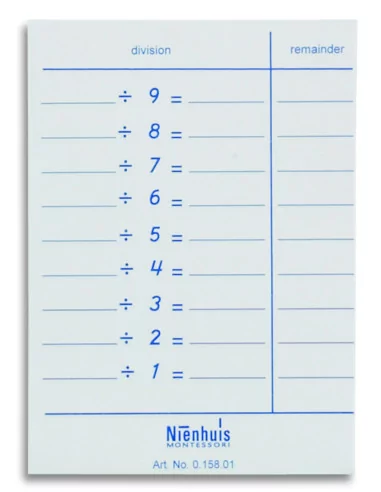 division remainder
÷ 9 =
÷ 8 =
÷ 7 =
÷ 6 =
÷ 5 =
÷ 4 =
÷ 3 =
÷ 2 =
÷ 1 =
Nienhuis
MONTESSORI
Art. No. 0.158.01